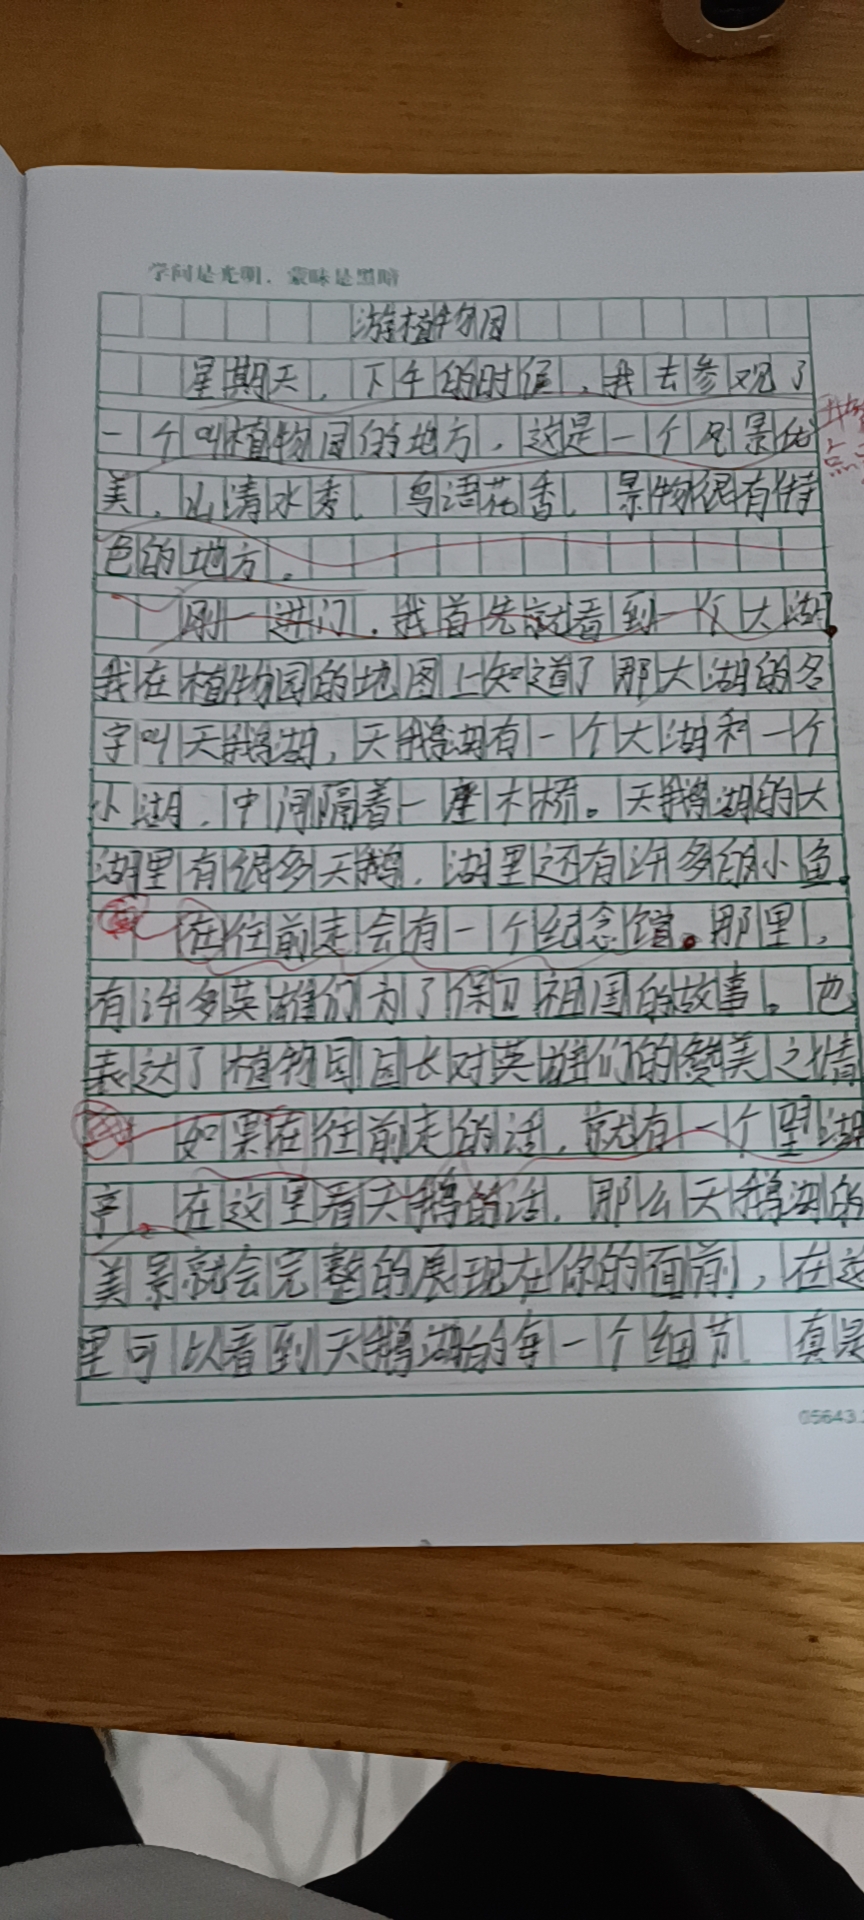 学问是光明，蒙昧是黑暗
游植物园
星期天，下午的时候，我去参观了
一个叫植物园的地方，这是一个风景优
美，山清水秀，鸟语花香，景物很有特
色的地方。
刚一进门，我首先就看到一个大湖。
我在植物园的地图上知道了那大湖的名
字叫天鹅湖，天鹅湖有一个大湖和一个
小湖，中间隔着一座木桥。天鹅湖的大
湖里有很多天鹅，湖里还有许多的小鱼。
在往前走会有一个纪念馆。那里，
有许多英雄们为了保卫祖国的故事。也
表达了植物园园长对英雄们的赞美之情
如果在往前走的话，就有一个望湖
亭。在这里看天鹅的话，那么天鹅湖的
美景就会完整的展现在你的面前，在这
里可以看到天鹅湖的每一个细节，真是
05643